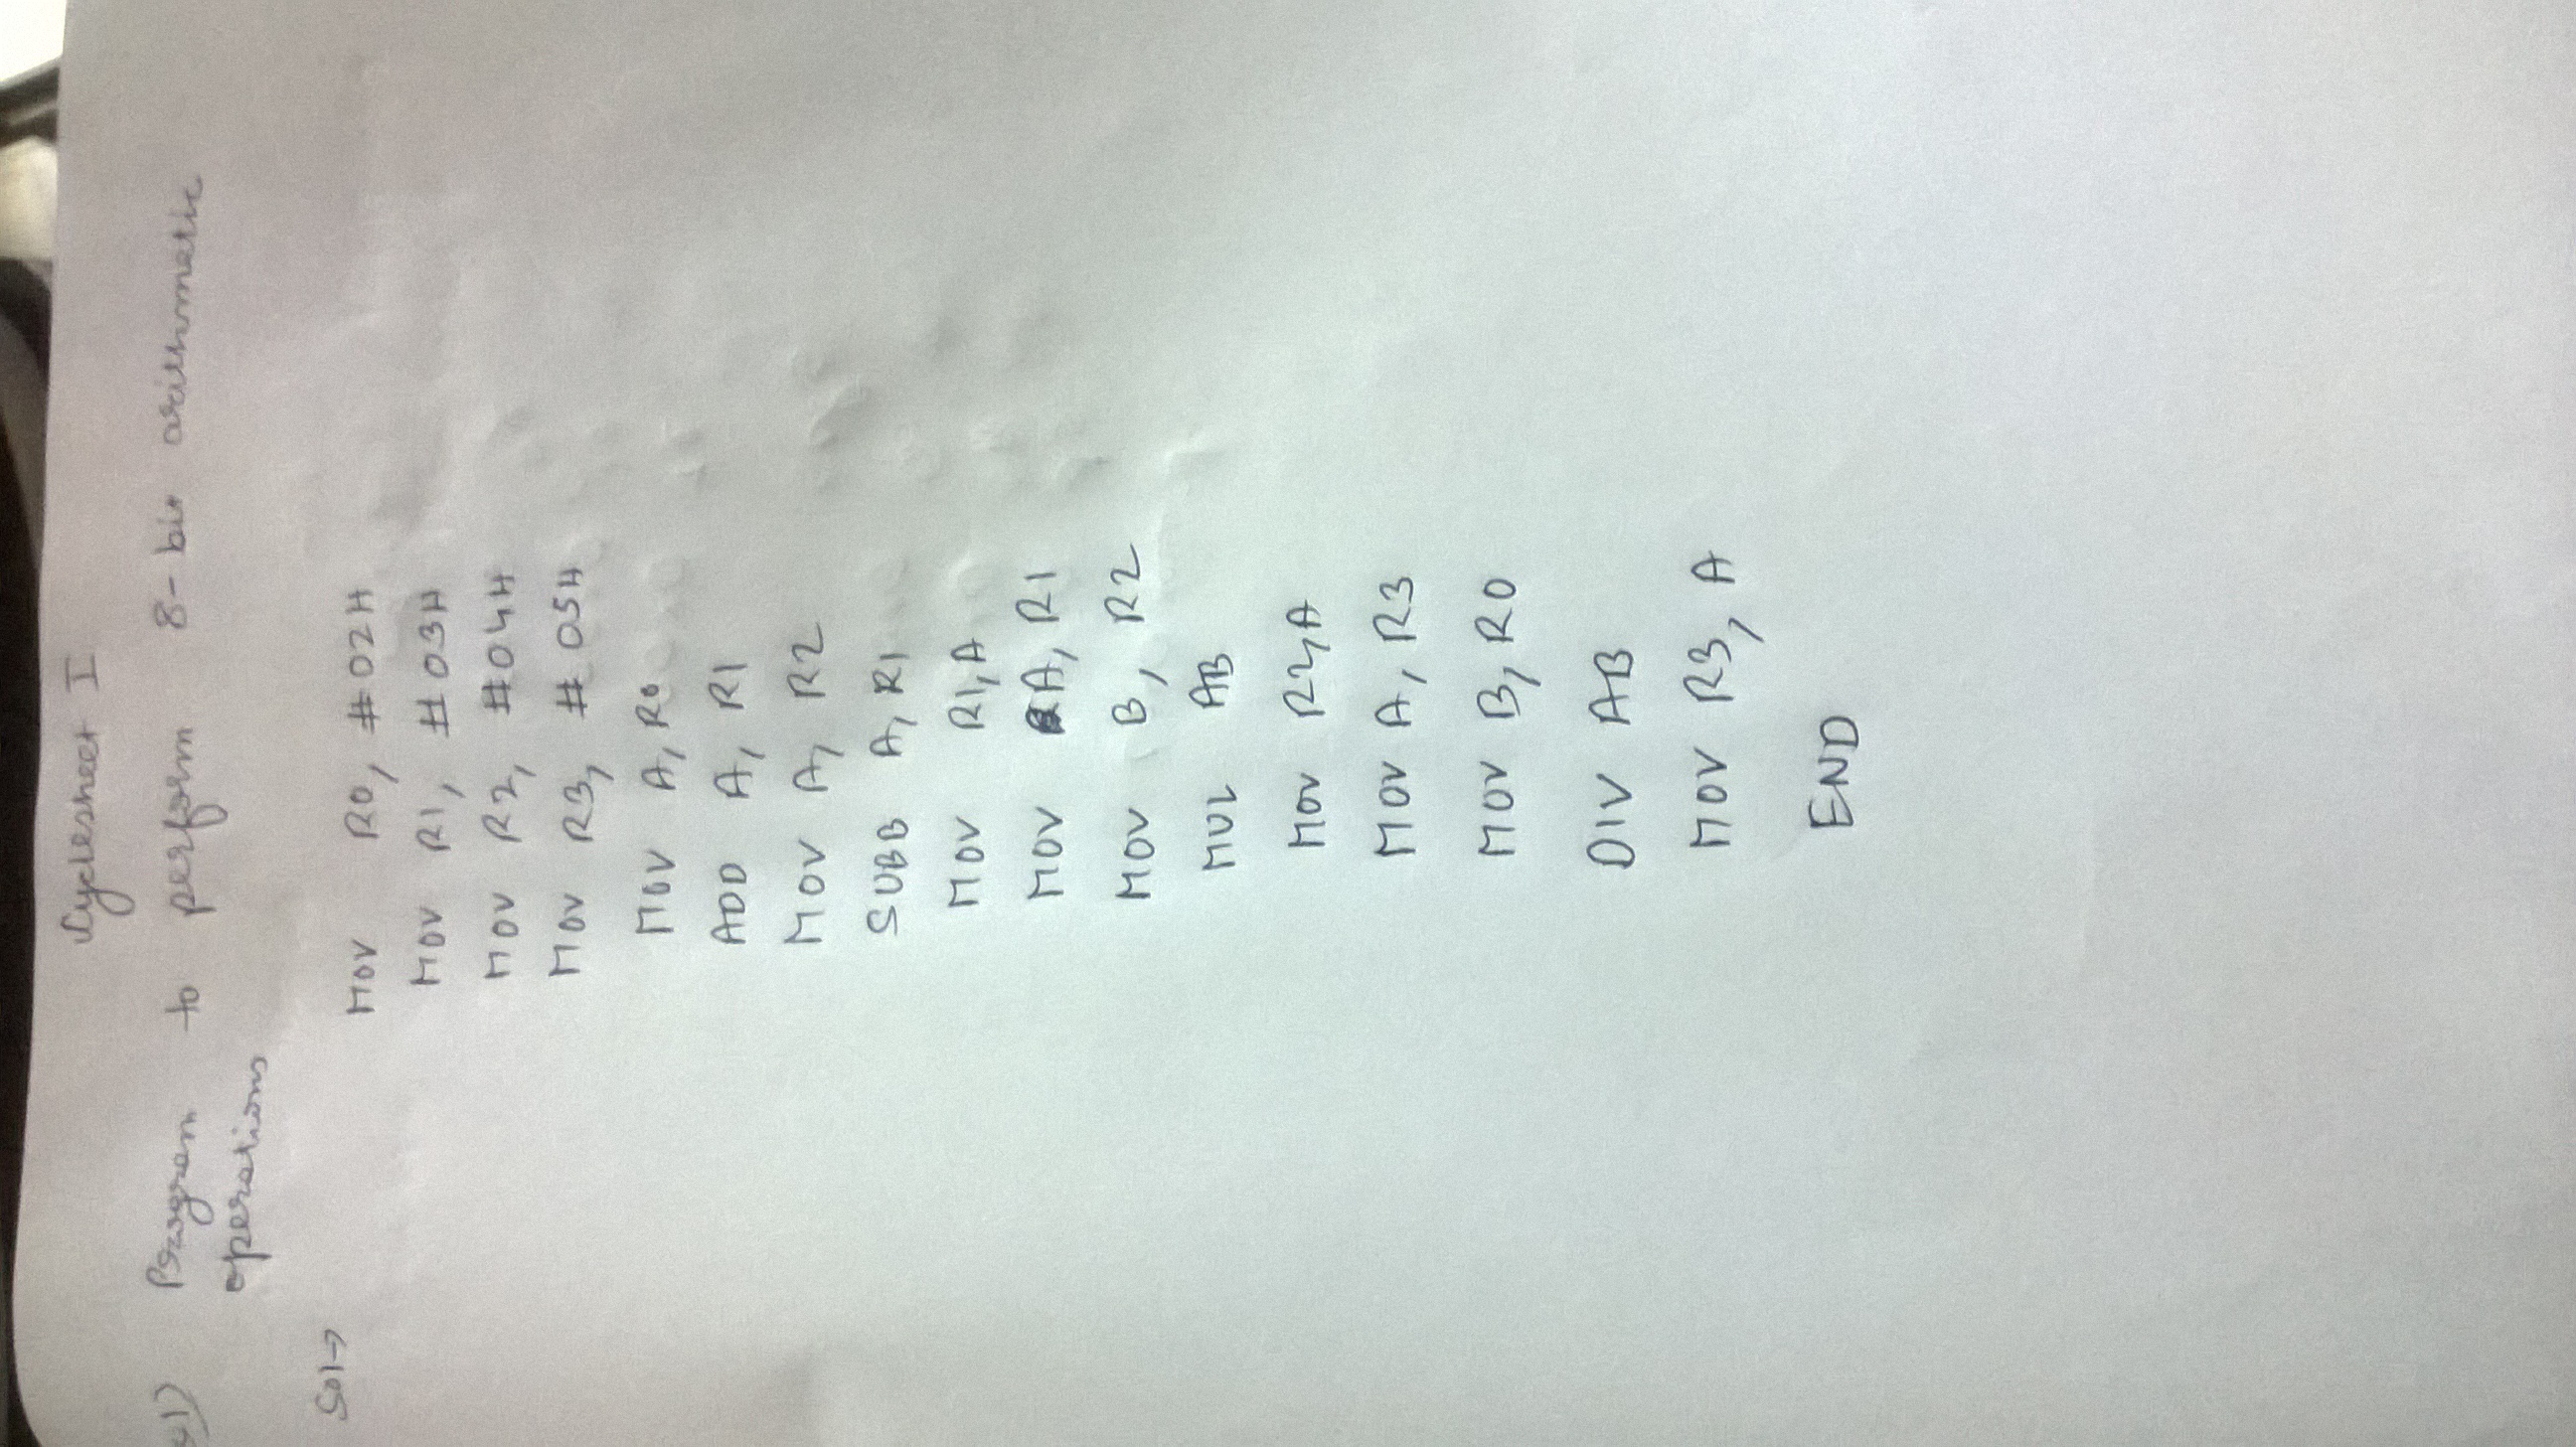 Cyclesheet I
1) Program to perform 8-bit arithmetic
operations
Sol→
MOV R0, #02H
MOV R1, #03H
MOV R2, #04H
MOV R3, #05H
MOV A, R0
ADD A, R1
MOV A, R2
SUBB A, R1
MOV R1, A
MOV A, R1
MOV B, R2
MUL AB
MOV R2, A
MOV A, R3
MOV B, R0
DIV AB
MOV R3, A
END